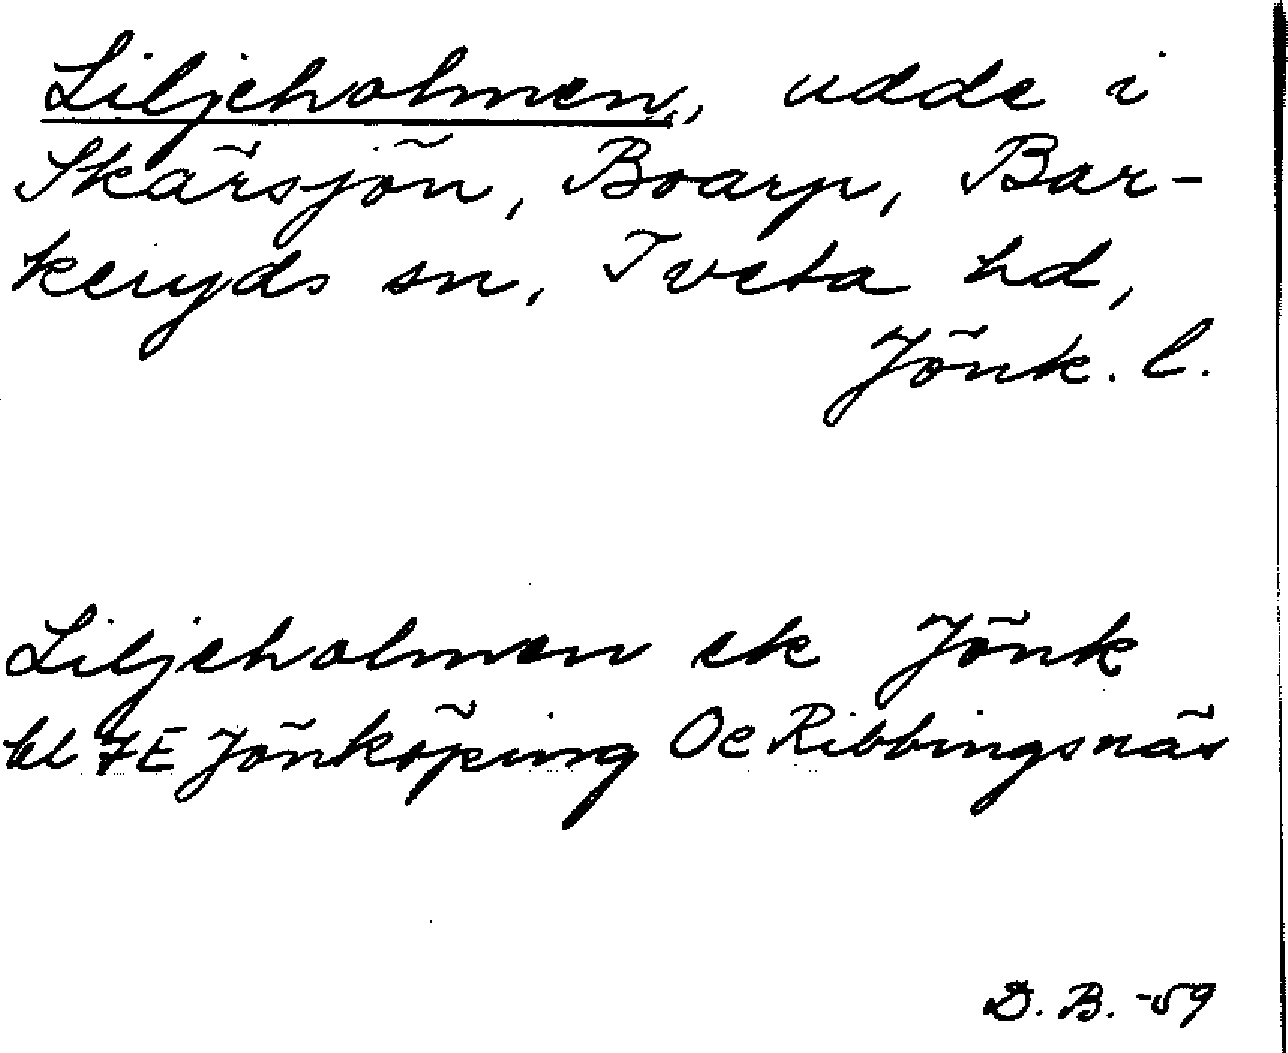 Liljeholmen, udde i
Skärsjön, Boarp, Bar-
keryds sn, Tveta hd,
Jönk. l.
Liljeholmen ek Jönk
bl 7E Jönköping Oe Ribbingsnäs
D. B. -59